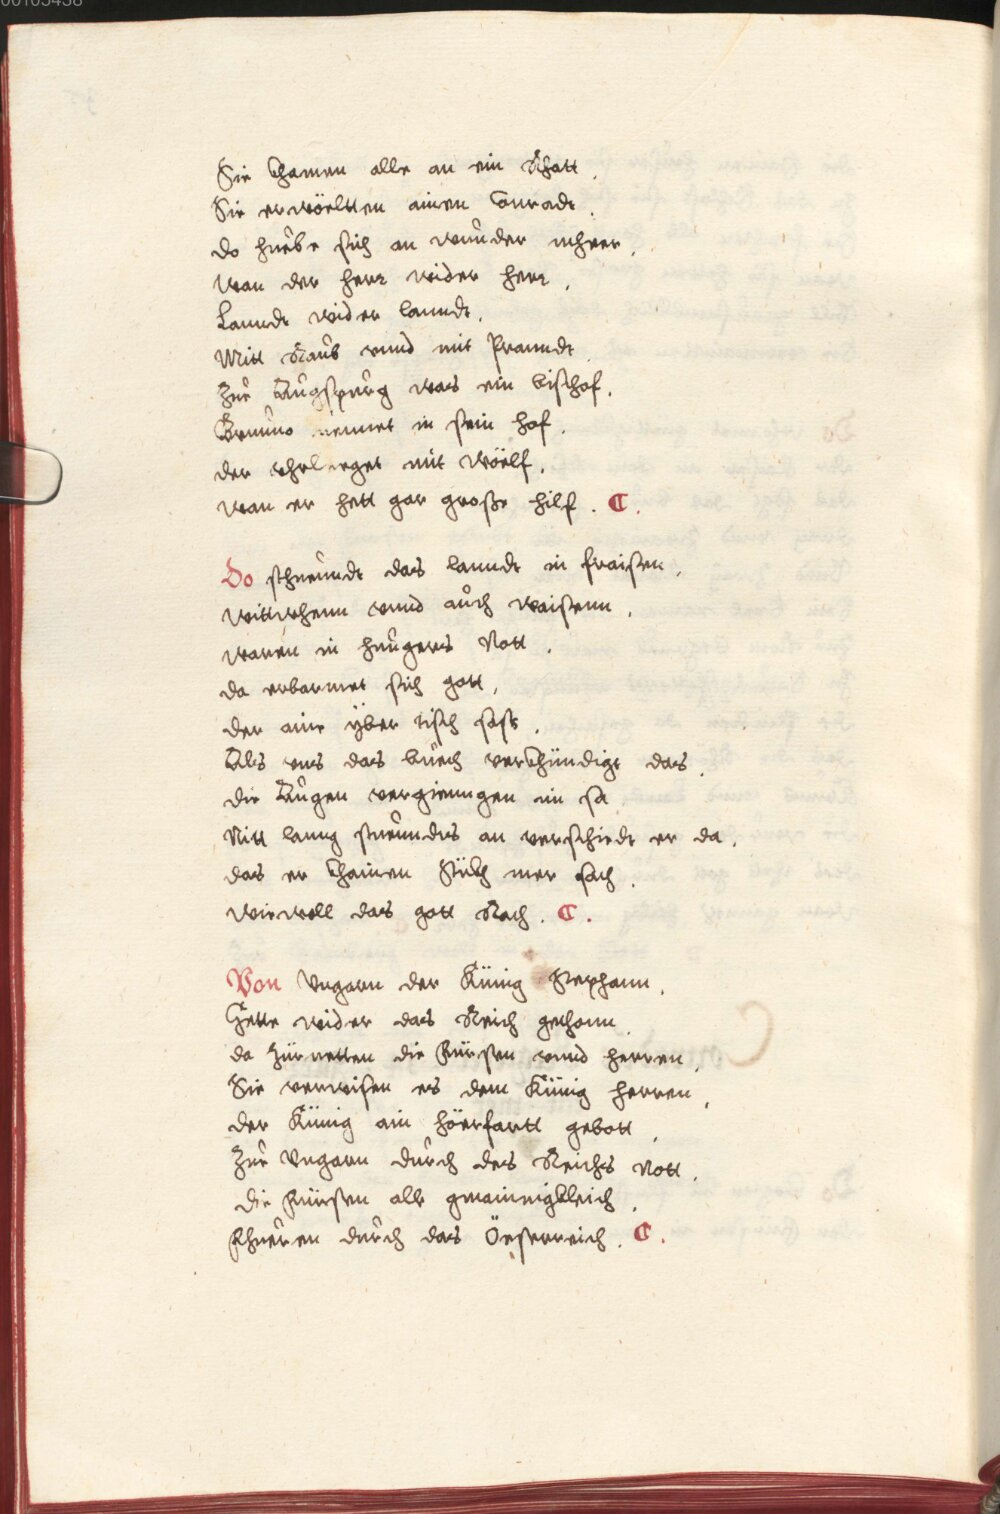 Sie khamen alle an ein Rhatt.
Sie erwöeltten ainen Conradt.
do huebe sich an wunder mherr.
wan der herr wider herr.
Lanndt wider lanndt.
Mitt Raub vnnd mit Pranndt.
Zue Augspurg was ein bischof.
Brunno nennet in sein hof.
der vhrlueget mit Wöelf.
wan er hett gar große hilf. C.
Do schrundt das lanndt in fraisen.
Wittwhenn vnnd auch waisenn.
waren in hungers Nott.
da erbarmet sich gott.
der aine yber tisch sass.
Als vns das buech verkhündigt das.
die Augen vergienngen im sa
Nitt lanng stundts an verschiedt er da.
das er khainen Stückh mer sach.
wiewoll das gott Rach. C.
Von Vngarn der Künig Stephann.
Hette wider das Reich gethonn.
da Zürnetten die Fürsten vnnd herren.
Sie verwisen es dem Künig herren.
der Künig ain höerfartt gebott.
Zue Vngarn durch des Reichs Nott.
die Fürsten alle gmainigkleich.
Fhueren durch das Öesterreich. C.